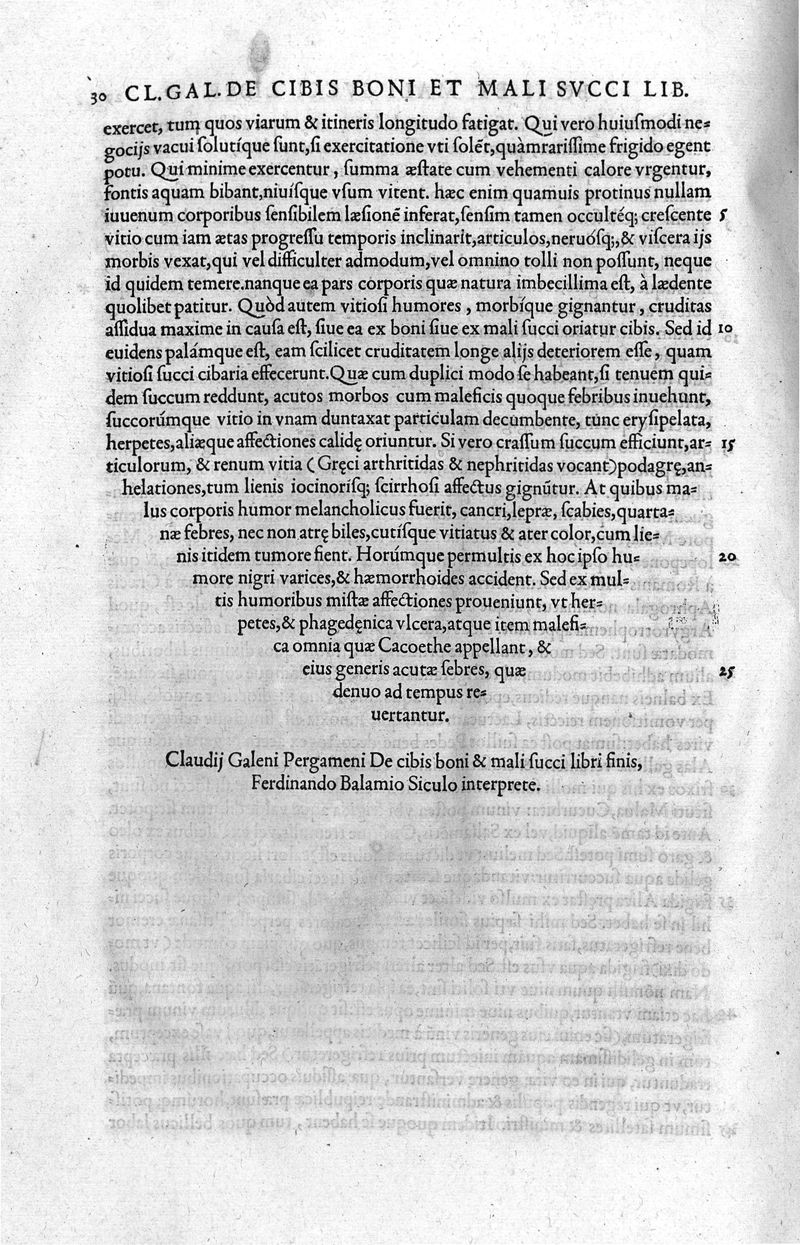 30 CL. GAL. DE CIBIS BONI ET MALI SVCCI LIB.
exercet, tum quos viarum & itineris longitudo fatigat. Qui vero huiuſmodi ne=
gocijs vacui ſolutíque ſunt, ſi exercitatione vti ſolẽt, quàmrariſſime frigido egent
potu. Qui minime exercentur, ſumma æſtate cum vehementi calore vrgentur,
fontis aquam bibant, niuíſque vſum vitent. hæc enim quamuis protinus nullam
iuuenum corporibus ſenſibilem læſionẽ inferat, ſenſim tamen occultéq; creſcente 5
vitio cum iam ætas progreſſu temporis inclinarit, articulos, neruóſq;, & viſcera ijs
morbis vexat, qui vel difficulter admodum, vel omnino tolli non poſſunt, neque
id quidem temere. nanque ea pars corporis quæ natura imbecillima eſt, à lædente
quolibet patitur. Quòd autem vitioſi humores, morbíque gignantur, cruditas
aſſidua maxime in cauſa eſt, ſiue ea ex boni ſiue ex mali ſucci oriatur cibis. Sed id 10
euidens palámque eſt, eam ſcilicet cruditatem longe alijs deteriorem eſſe, quam
vitioſi ſucci cibaria effecerunt. Quæ cum duplici modo ſe habeant, ſi tenuem qui=
dem ſuccum reddunt, acutos morbos cum maleficis quoque febribus inuehunt,
ſuccorúmque vitio in vnam duntaxat particulam decumbente, tunc eryſipelata,
herpetes, aliæque affectiones calidę oriuntur. Si vero craſſum ſuccum efficiunt, ar= 15
ticulorum, & renum vitia (Gręci arthritidas & nephritidas vocant) podagrę, an=
helationes, tum lienis iocinoríſq; ſcirrhoſi affectus gignũtur. At quibus ma=
lus corporis humor melancholicus fuerit, cancri, lepræ, ſcabies, quarta=
næ febres, nec non atrę biles, cutíſque vitiatus & ater color, cum lie=
nis itidem tumore fient. Horúmque permultis ex hoc ipſo hu= 20
more nigri varices, & hæmorrhoides accident. Sed ex mul=
tis humoribus miſtæ affectiones proueniunt, vt her=
petes, & phagedęnica vlcera, atque item malefi=
ca omnia quæ Cacoethe appellant, &
eius generis acutæ febres, quæ 25
denuo ad tempus re=
uertantur.
Claudij Galeni Pergameni De cibis boni & mali ſucci libri finis,
Ferdinando Balamio Siculo interprete.